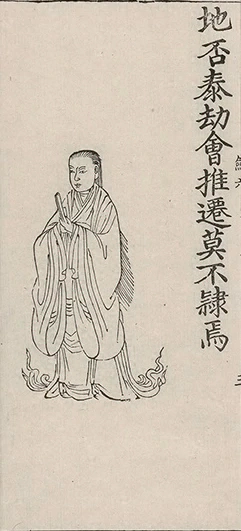 地否泰劫會推遷莫不隸焉
三